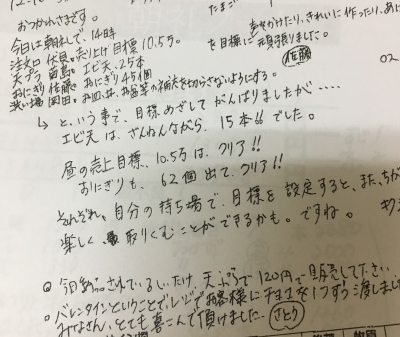 おつかれさまです。
今日は朝礼して、14時
注文口 伏見。売上げ目標 10.5万。
天プラ 首島。エビ天、25本
おにぎり 佐藤。おにぎり 45個
洗い場 岡田。お皿、お盆等の補充を切らさないようにする。
たまご
幸せかけたり、きれいに作ったり、あ
を目標に頑張りました。
佐藤
02
↳ という事で、目標めざしてがんばりましたが‥‥
エビ天は、ざんねんながら、15本!!でした。
昼の売上目標、10.5万は、クリア!!
おにぎりも、62個出て、クリア!!
それぞれ、自分の持ち場で、目標を設定すると、また、ちが
楽しく、取りくむことができるかも。ですね。
◎ 今日納品されているしいたけ、天ぷらで120円で販売して下さい
◎ バレンタインということで、レジでお客様にチョコを1つずつ渡しまし
みなさん、とても喜こんで頂けました。 さとう